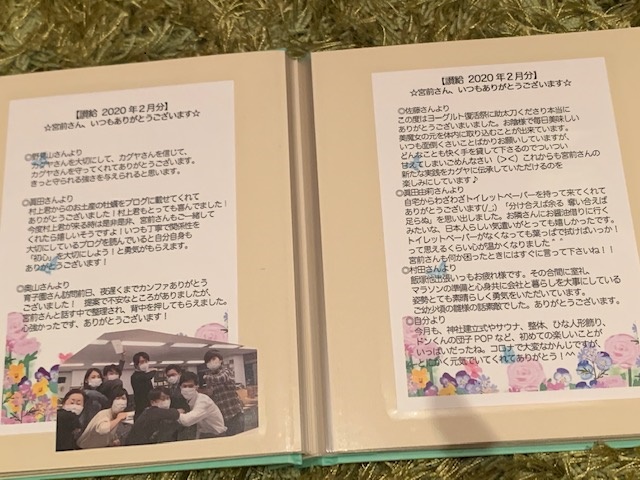 【讃給 2020年2月分】
☆宮前さん、いつもありがとうございます☆
◎野見山さんより
カグヤさんを大切にして、カグヤさんを信じて、
カグヤさんを守ってくれてありがとうございます。
きっと守られる強さを与えられると思います。
◎眞田さんより
村上君からのお土産の牡蠣をブログに載せてくれて
ありがとうございました!村上君もとっても喜んでました!
今度村上君が来る時は是非是非、宮前さんもご一緒して
くれたら嬉しいそうですよ!いつも丁寧で関係性を
大切にしているブログを読んでいると自分自身も
「初心」を大切にしよう!と勇気がもらえます。
ありがとうございます!
◎奥山さんより
育子園さん訪問前日、夜遅くまでカンファありがとう
ございました! 提案で不安なところがありましたが、
宮前さんと話す中で整理され、背中を押してもらえました。
心強かったです、ありがとうございます!
【讃給 2020年2月分】
☆宮前さん、いつもありがとうございます☆
◎佐藤さんより
この度はヨーグルト復活祭に助太刀くださり本当に
ありがとうございまいました。お陰様で毎日美味しい
美魔女の元を体内に取り込むことが出来ています。
いつも面倒くさいことばかりお願いしていますが、
どんなことも快く手を貸して下さるのでついつい
甘えてしまいごめんなさい(><)これからも宮前さんの
新たな実践をカグヤに伝承していただけるのを
楽しみにしています♪
◎眞田由莉さんより
自宅からわざわざトイレットペーパーを持って来てくれて
ありがとうございます(_;)「分け合えば余る 奪い合えば
足らぬ」を思い出しました。お隣さんにお醤油借りに行く
みたいな、日本人らしい気遣いがとっても嬉しかったです。
トイレットペーパーがなくなっても葉っぱで拭けばいっか!
って思えるくらい心が温かくなりました^^
宮前さんも何か困ったときにはすぐに言って下さいね!!
◎村田さんより
飯塚他出張いつもお疲れ様です。その合間に室礼、
マラソンの準備と心身共に会社と暮らしを大事にしている
姿勢とても素晴らしく勇気をいただいています。
ご幼少頃の雛様の話素敵でした。ありがとうございます。
◎自分より
今月も、神社建立式やサウナ、整体、ひな人形飾り、
ドンくんの団子POPなど、初めての楽しいことが
いっぱいだったね。コロナで大変なかんじですが、
とにかく元気でいてくれてありがとう!^^